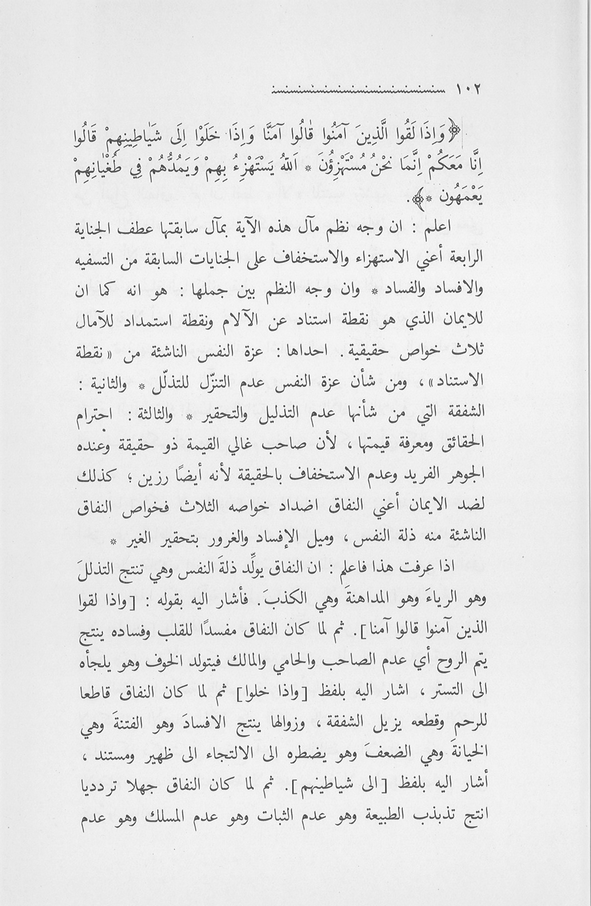 ١٠٢
﴿وَاِذَا لَقُوا الَّذِينَ آمَنُوا قَالُوا آمَنَّا وَاِذَا خَلَوْا اِلَى شَيَاطِينِهِمْ قَالُوا
اِنَّا مَعَكُمْ اِنَّمَا نَحْنُ مُسْتَهْزِؤُنَ * اَللهُ يَسْتَهْزِءُ بِهِمْ وَيَمُدُّهُمْ فِي طُغْيَانِهِمْ
يَعْمَهُونَ *﴾.
اعلم : ان وجه نظم مآل هذه الآية بمآل سابقتها عطف الجناية
الرابعة أعني الاستهزاء والاستخفاف على الجنايات السابقة من التسفيه
والافساد والفساد * وان وجه النظم بين جملها : هو انه كما ان
للايمان الذي هو نقطة استناد عن الآلام ونقطة استمداد للآمال
ثلاث خواص حقيقية. احداها : عزة النفس الناشئة من «نقطة
الاستناد»، ومن شأن عزة النفس عدم التنزّل للتذلّل * والثانية :
الشفقة التي من شأنها عدم التذليل والتحقير * والثالثة : احترام
الحقائق ومعرفة قيمتها ، لأن صاحب غالي القيمة ذو حقيقة وعنده
الجوهر الفريد وعدم الاستخفاف بالحقيقة لأنه أيضًا رزين ؛ كذلك
لضد الايمان أعني النفاق اضداد خواصه الثلاث فخواص النفاق
الناشئة منه ذلة النفس ، وميل الإفساد والغرور بتحقير الغير *
اذا عرفت هذا فاعلم : ان النفاق يولِّد ذلةَ النفس وهي تنتج التذللَ
وهو الرياءَ وهو المداهنةَ وهي الكذبَ. فأشار اليه بقوله : [واذا لقوا
الذين آمنوا قالوا آمنا]. ثم لما كان النفاق مفسدًا للقلب وفساده ينتج
يتم الروح أي عدم الصاحب والحامي والمالك فيتولد الخوف وهو يلجأه
الى التستر ، اشار اليه بلفظ [واذا خلوا] ثم لما كان النفاق قاطعا
للرحم وقطعه يزيل الشفقة ، وزوالها ينتج الافسادَ وهو الفتنةَ وهي
الخيانةَ وهي الضعفَ وهو يضطره الى الالتجاء الى ظهير ومستند ،
أشار اليه بلفظ [الى شياطينهم]. ثم لما كان النفاق جهلا ترددیا
انتج تذبذب الطبيعة وهو عدم الثبات وهو عدم المسلك وهو عدم